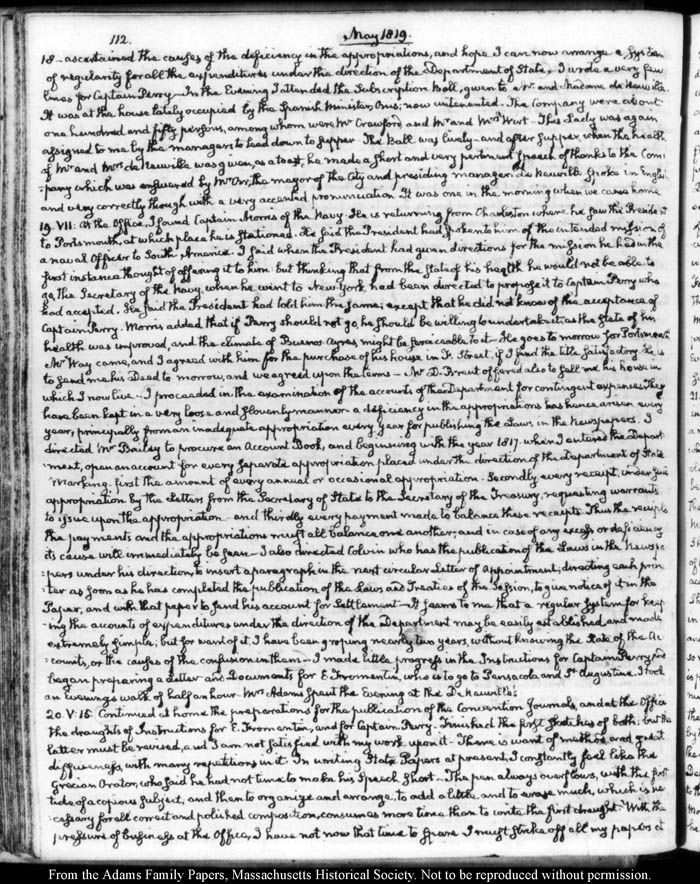 112.
May 1819.
18 - ascertained the causes of the deficiency in the appropriations, and hope I can now arrange a system
of regularity for all the expenditures under the direction of the Department of State. I wrote a very few
lines for Captain Perry. In the Evening I attended the Subscription Ball, given to Mr. and Madame de Neuville.
It was at the house lately occupied by the Spanish Minister, Onis; now untenanted. The Company were about
one hundred and fifty persons, among whom were Mr Crawford, and Mr and Mrs Wirt. This Lady was again
assigned to me by the managers to lead down to supper. The Ball was lively and after supper, when the health
of Mr and Mrs de Neuville was given, as a toast, he made a short and very pertinent speech of thanks to the Com-
:pany which was answered by Mr Orr, the mayor of the City and presiding manager. de Neuville spoke in English
and very correctly though with a very accented pronunciation. It was one in the morning when we came home
19. VII. At the Office, I found Captain Morris of the Navy. He is returning from Charleston where he saw the President
to Portsmouth, at which place he is stationed. He said the President had spoken to him of the intended mission of
a naval Officer to South-America. I said when the President had given directions for the mission he had in the
first instance thought of offering it to him. but thinking that from the state of his health he would not be able to
go, the Secretary of the Navy, when he went to New York had been directed to propose it to Captain Perry who
had accepted. He said the President had told him the same; except that he did not know of the acceptance of
Captain Perry. Morris added that if Perry should not go, he should be willing to undertake it as the state of his
health was improved, and the climate of Buenos Ayres might be serviceable to it. He goes to morrow for Portsmouth
Mr Way came, and I agreed with him for the purchase of his house in F. Street, if I find the title satisfactory. He is
to send me his Deed to morrow, and we agreed upon the terms - Mr D. Brent offered also to sell me his house in
which I now live. I proceeded in the examination of the accounts of the Department for contingent expenses. They
have been kept in a very loose and slovenly manner a deficiency in the appropriations has hence arisen every
year, principally from an inadequate appropriation every year for publishing the Laws, in the Newspapers. I
directed Mr Bailey to procure an Account Book, and beginning with the year 1817. when I entered the Depart-
:ment, open an account for every separate appropriation placed under the direction of the Department of State
Marking. first the amount of every annual or occasional appropriation. Secondly every receipt, under such
appropriation by the Letters from the Secretary of State to the Secretary of the Treasury, requesting warrants
to issue upon the appropriation - and thirdly every payment made to balance these receipts. Thus the receipts
the payments and the appropriations must all balance one another; and in case of any excess or deficiency
its cause will immediately be seen - I also directed Colvin who has the publication of the Laws in the Newspa-
:pers under his direction, to insert a paragraph in the next circular Letter of appointment, directing each prin-
:ter as soon as he has completed the publication of the Laws and Treaties of the Session, to give notice of it in the
Paper, and with that paper to send his account for settlement - It seems to me that a regular system for keep-
:ing the accounts of expenditures under the direction of the Department may be easily established, and made
extremely simple; but for want of it I have been groping nearly two years, without knowing the state of the Ac-
:counts, or the causes of the confusion in them - I made little progress in the Instructions for Captain Perry, and
began preparing a Letter and Documents for E. Fromentin, who is to go to Pensacola and St. Augustine. I took
an evening's walk of half an hour. Mrs Adams spent the Evening at the De Neuville's.
20. V.15. Continued at home the preparations for the publication of the Convention Journals, and at the Office
the draughts of Instructions for E. Fromentin, and for Captain Perry. Finished the first sketches of both; but the
latter must be revised, and I am not satisfied with my work upon it - There is want of method and great
diffuseness, with many repetitions in it. In writing State Papers at present, I constantly feel like the
Grecian Orator, who said he had not time to make his speech short. The pen always overflows, with the first
tide of a copious subject, and then to organize and arrange, to add a little and to erase much, which is ne-
:cessary for all correct and polished composition, consumes more time than to write the first draught. With the
pressure of business at the Office, I have not now that time to spare. I must strike off all my papers at
From the Adams Family Papers, Massachusetts Historical Society. Not to be reproduced without permission.